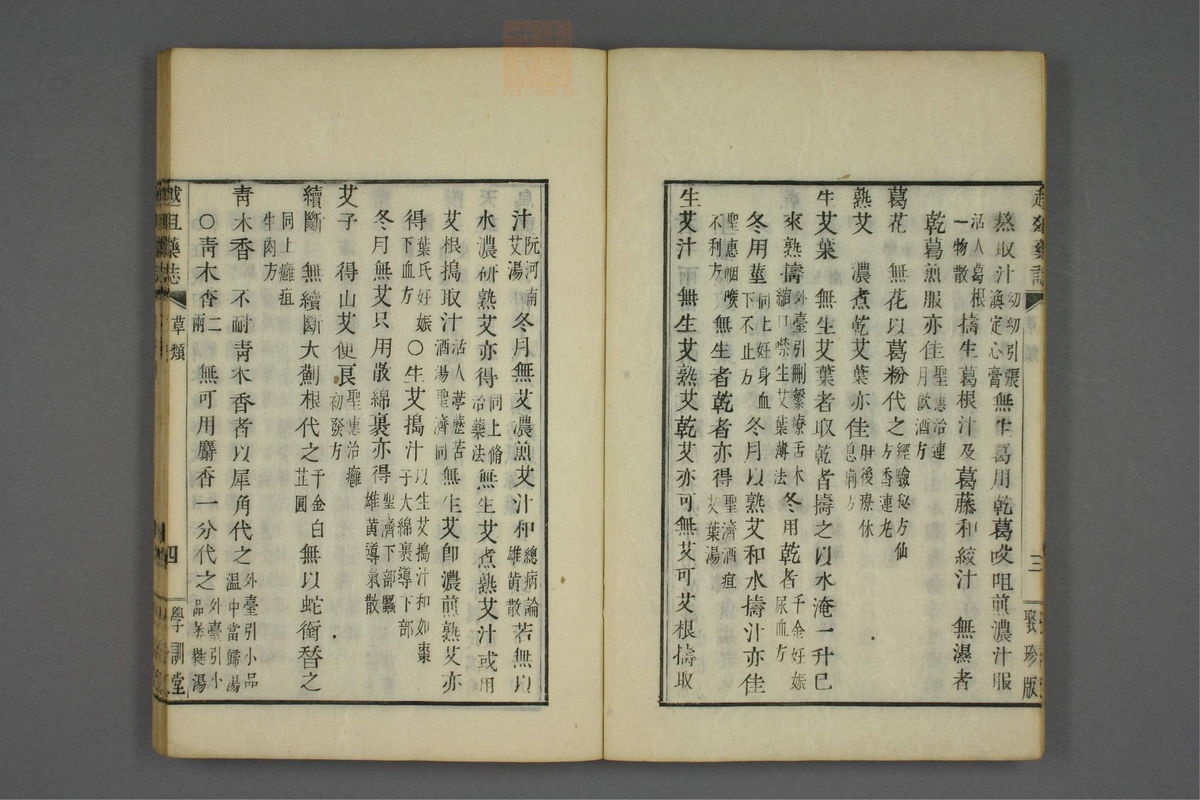 熬取汁幼幼引張渙定心膏無生葛用乾葛㕮咀煎濃汁服
活人葛根一物散擣生葛根汁及葛藤和絞汁　無濕者
乾葛煎服亦佳聖惠治連月飲酒方
葛花　無花以葛粉代之經驗秘方仙方香連老
熟艾　濃煮乾艾葉亦佳肘後療休息痢方
生艾葉　無生艾葉者取乾者擣之以水淹一升已
來熟擣外臺引刪繁療舌木縮口噤生艾葉薄法冬用乾者千金妊娠尿血方
冬用莖同上妊身血下不止方冬月以熟艾和水擣汁亦佳
聖惠咽喉不利方無生者乾者亦得聖濟酒疸艾葉湯
生艾汁兩　無生艾熟艾乾艾亦可無艾可艾根擣取
三
聚珍版
汁阮河南艾湯冬月無艾濃煎艾汁和總病論雄黄散若無以
水濃研熟艾亦得同上脩治藥法無生艾煮熟艾汁或用
艾根搗取汁活人葶藶苦酒湯聖濟同無生艾卽濃煎熟艾亦
得葉氏妊娠下血方○生艾搗汁以生艾搗汁和如棗子大綿裹導下部
冬月無艾只用散綿裹亦得聖濟下部䘌雄黄導氣散
艾子　得山艾便良聖惠治癰初發方
續斷　無續斷大薊根代之千金白芷圓無以蛇銜替之
同上癰疽牛肉方
青木香　不耐青木香者以犀角代之外臺引小品溫中當歸湯
○青木香二兩　無可用麝香一分代之外臺引小品犀麰湯
草類
四
學訓堂